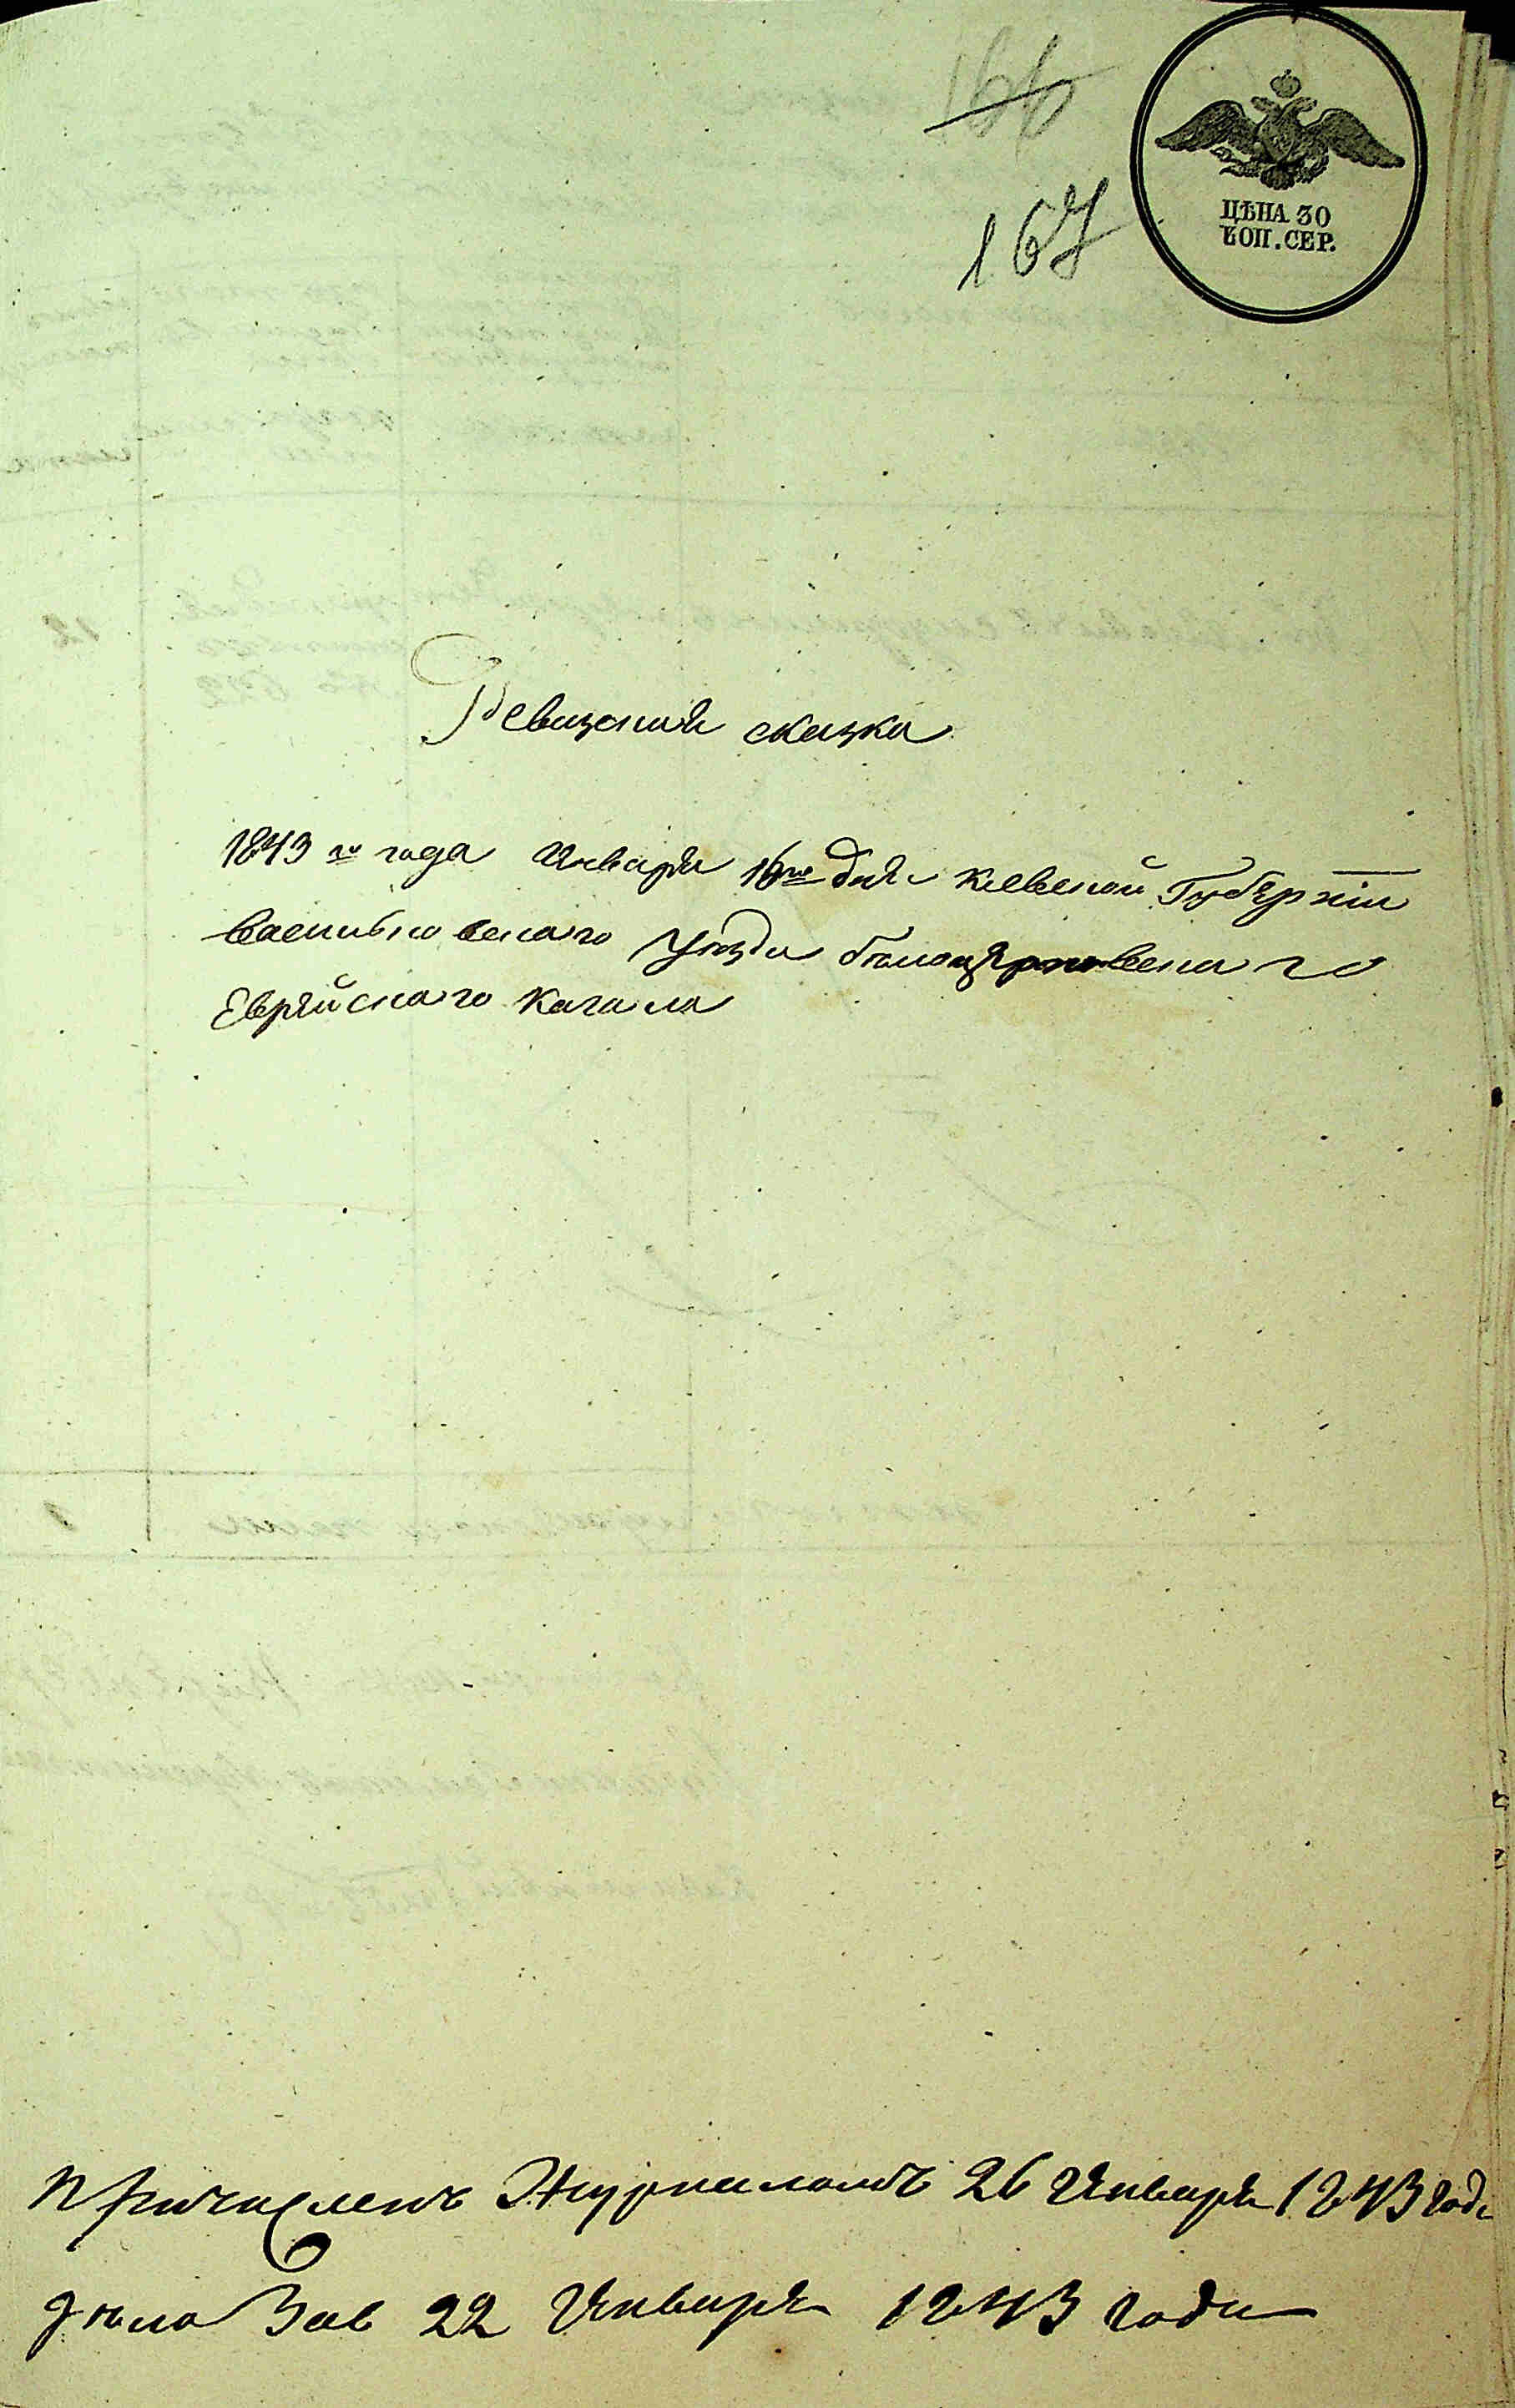 166
167
ЦѢНА 30
КОП. СЕР.
Ревизская сказка
1843 го года Января 16го дня Киевской Губерніи
Васильковскаго Уѣзда бѣлоцерковскаго
Еврейскаго Кагала
Причисленъ Журналомъ 26 Января 1843 года
дѣло Зав 22 Января 1843 года